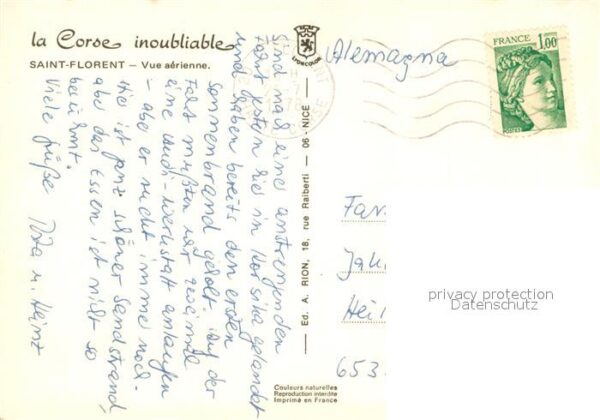 la Corse inoubliable
SAINT-FLORENT — Vue aérienne.
LYONCOLOR
Alemagna
FRANCE
1,00
POSTES
Sind nach einer anstrengenden
Fahrt gestern hier in Korsika gelandet
und haben bereits den ersten
Sonnenbrand geholt. Auf der
Fahrt mußten wir zweimal
eine Audi-Werkstatt anlaufen
- aber er zieht immer noch.
Hier ist ganz schöner Sandstrand,
aber das Essen ist nicht so
berühmt.
Viele Grüße
u. Heinz
Ed. A. RION, 18, rue Raiberti — 06 - NICE
Fam.
Jak
Heil
653
privacy protection
Datenschutz
Couleurs naturelles
Reproduction interdite
Imprimé en France